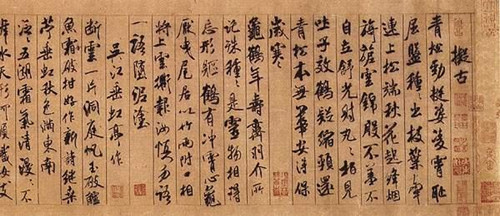 擬古
青松勁挺姿凌霄恥
屈盤種種出枝葉牽
連上松端秋花起絳烟
旖旎雲錦殷不羞不
自立舒光射丸丸柏見
吐子效鶴疑縮頸還
青松本無華安得保
歲寒
龜鶴年壽齊羽介所
託殊種種是靈物相得
忘形軀鶴有冲霄心龜
厭曳尾居以竹兩附口相
將上雲衢報汝慎勿語
一語墮泥塗
吳江垂虹亭作
斷雲一片洞庭帆玉破鱸
魚霜破柑好作新詩繼桑
苧垂虹秋色滿東南
泛泛五湖霜氣清漫漫不
辨水天形何須織女支